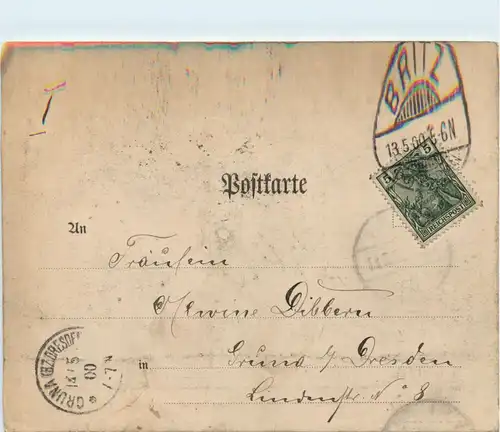 BRITZ
13.5.00 5-6N
5 5
REICHSPOST
Postkarte
An
Fräulein
Alwine Dibbern
in
Gruna b/ Dresden
Lindenstr. No 8
GRUNA (BZ. DRESDEN)
00